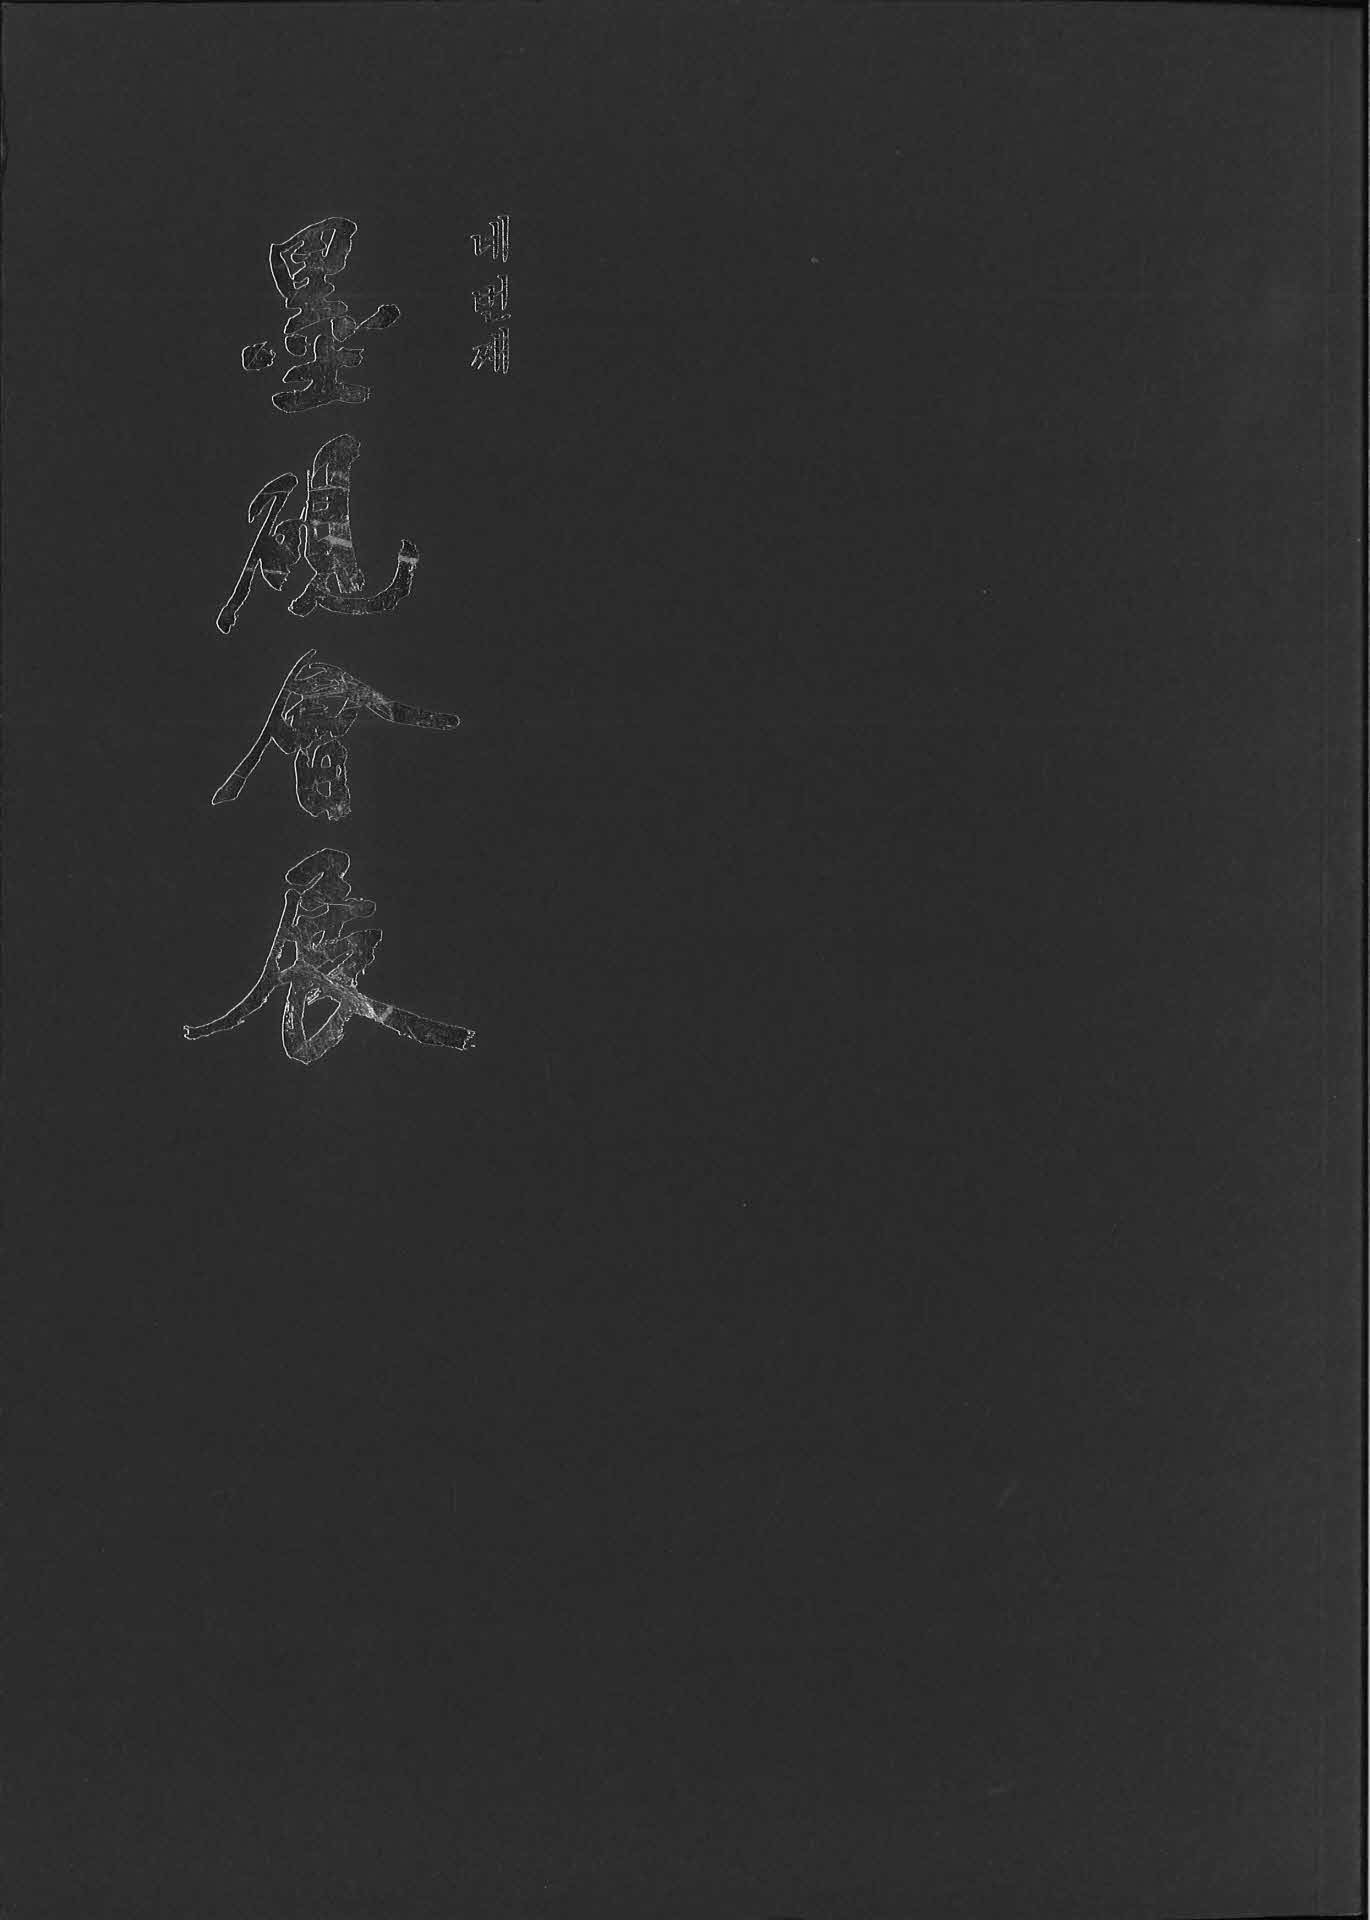 네번째
墨硯會展